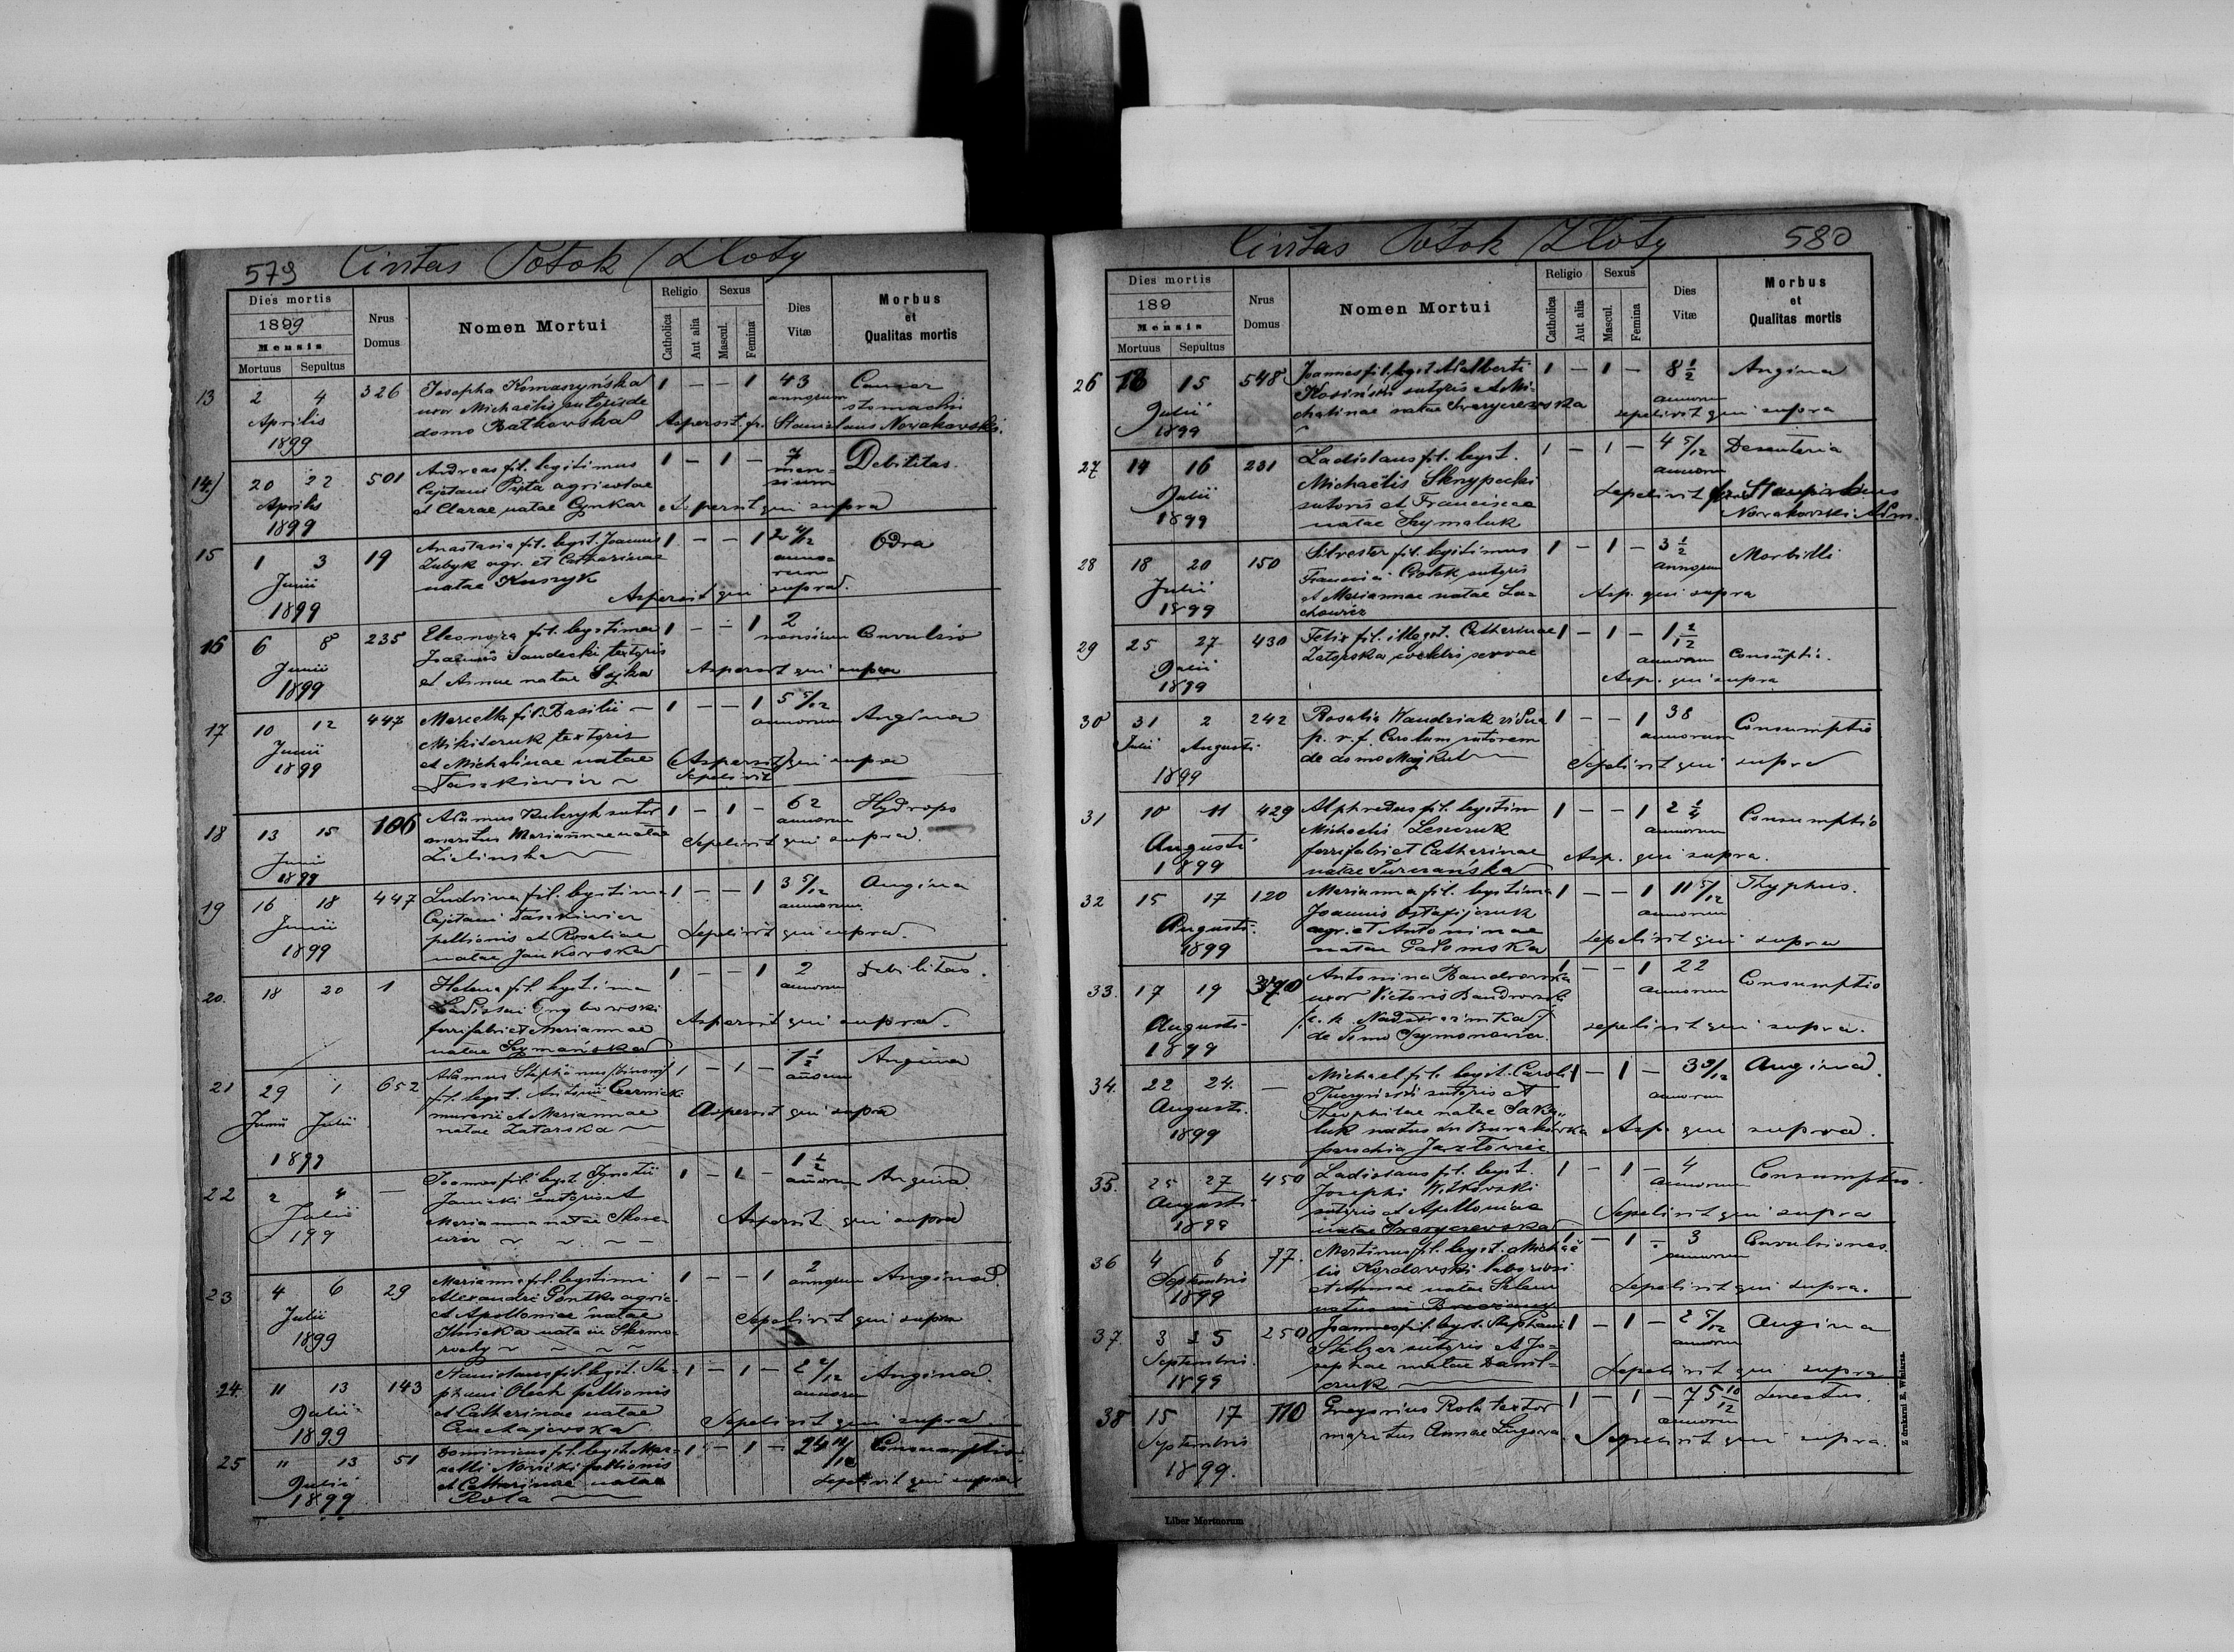 579 Civitas Potok Złoty
Dies mortis
1899
Mensis
Mortuus Sepultus
Nrus
Domus
Nomen Mortui
Religio
Catholica
Aut alia
Sexus
Mascul.
Femina
Dies
Vitæ
Morbus
et
Qualitas mortis
13 2 4 326 Josepha Komaszyńska 1 – – 1 43 Cancer
Aprilis uxor Michaëlis sutoris de annorum stomachi
1899 domo Ratkowska Aspersit fr. Stanislaus Nowakowski.
14.) 20 22 501 Andreas fil. legitimus 1 – 1 – 7 Debilitas.
Aprilis Cajetani Pijta agricolae mensium
1899 et Clarae natae Cynkar Aspersit qui supra
15 1 3 19 Anastasia fil. legit. Joannis 1 – – 1 2 4/12 Odra
Junii Zubyk agr. et Catharinae annorum
1899 natae Kuszyk Aspersit qui supra.
16 6 8 235 Eleonora fil. legitima 1 – – 1 2 Convulsio
Junii Joannis Sandecki textoris mensium
1899 et Annae natae Sojka Aspersit qui supra
17 10 12 447 Marcella fil. Basilii – 1 – – 1 5 5/12 Angina
Junii Mikiteruk textoris annorum
1899 et Michalinae natae (Aspersit) qui supra
Daszkiewicz Sepelivit
18 13 15 106 Adamus Kulczyk sutor 1 – 1 – 62 Hydrops
Junii maritus Mariannae natae annorum
1899 Zielinska Sepelivit qui supra.
19 16 18 447 Ludvina fil. legitima 1 – – 1 3 5/12 Angina
Junii Cajetani Daszkiewicz annorum
1899 pellionis et Rosaliae Sepelivit qui supra.
natae Jankowska
20. 18 20 1 Helena fil. legitima 1 – – 1 2 Debilitas.
Ladislai annorum
ferrifabri et Mariannae Aspersit qui supra.
natae Szymańska
21 29 1 652 Adamus Stephanus 1 – 1 – 1 1/2 Angina
Junii Julii fil. legit. Antonii Czernicki
1899 murarii et Mariannae Aspersit qui supra
natae Zatorska
22 2 4 — Joannes fil. legit. Ignatii 1 – 1 – 1 1/2 Angina
Julii Janicki sutoris et annorum
199 Marianna natae Skorewicz Aspersit qui supra
23 4 6 29 Marianna fil. legitimi 1 – – 1 2 Angina.
Julii Alexandri Gontko agric. annorum
1899 et Apolloniae natae Sepelivit qui supra
Ilnicka nata in Skomorochy
24. 11 13 143 Stanislaus fil. legit. Stephani 1 – 1 – 2 2/12 Angina
Julii Olech pellionis annorum
1899 et Catharinae natae Sepelivit qui supra.
Czuchajowska
25 11 13 51 Dominicus fil. legit. Marcelli 1 – 1 – Consumptio
Julii Nowicki pellionis
1899 et Catharinae natae Sepelivit qui supra
Rola
Civitas Potok Złoty 580
Dies mortis
189
Mensis
Mortuus Sepultus
Nrus
Domus
Nomen Mortui
Religio
Catholica
Aut alia
Sexus
Mascul.
Femina
Dies
Vitæ
Morbus
et
Qualitas mortis
26 13 15 548 Joannes fil. legit. Adalberti 1 – 1 – 8 1/2 Angina
Julii Kosiński sutoris et Michalinae annorum
1899 natae sepelivit qui supra
27 14 16 231 Ladislaus fil. legit. 1 – 1 – 4 5/12 Desenteria
Julii Michaëlis Skrypecki annorum
1899 sutoris et Franciscae Sepelivit
natae Szymaluk Nowakowski Adm.
28 18 20 150 Silvester fil. legitimus 1 – 1 – 3 1/2 Morbilli
Julii Francisci Potok sutoris annorum
1899 et Mariannae natae Lachowicz Asp. qui supra
29 25 27 430 Felix fil. illegit. Catharinae 1 – 1 – 1 2/12 Consumptio.
Julii Zatorska annorum
1899 Asp. qui supra
30 31 2 242 Rosalia Wandziak vidua 1 – – 1 38 Consumptio
Julii Augusti p. r. f. Carolum sutorem annorum
1899 de domo Majkut Sepelivit qui supra
31 10 11 429 Alphredus fil. legitim 1 – – 1 2 1/4 Consumptio
Augusti Michaelis Lenczuk annorum
1899 ferrifabri et Catharinae Asp. qui supra.
natae Turczańska
32 15 17 120 Marianna fil. legitima 1 – – 1 11 5/12 Thyphus.
Augusti. Joannis Ostafijczuk annorum
1899 agr. et Antoninae Sepelivit qui supra
natae Gałomska
33. 17 19 370 Antonina Bandrowska 1 – – 1 22 Consumptio
Augusti uxor Victoris Bandrowski annorum
1899 c. k. Nadstraźnika sepelivit qui supra.
de domo Szymonowicz
34. 22 24. — Michael fil. legit. Caroli 1 – 1 – 3 3/12 Angina.
Augusti. Tuczyński sutoris et annorum
1899 Theophilae natae Sakaluk
natus in Burakówka Asp. qui supra.
parochia Jazłowiec
35. 25 27 450 Ladislaus fil. legit. 1 – 1 – 4 Consumptio.
Augusti Josephi Witkowski annorum
1899 sutoris et Apolloniae Sepelivit qui supra
natae
36 4 6 77. Martinus fil. legit. Michaëlis 1 – 1 – 3 Convulsiones.
Septembris Kordowski laboriosi annorum
1899 et Annae natae Sepelivit qui supra.
37. 3 5 250 Joannes fil. legit. Stephani 1 – 1 – 2 5/12 Angina
Septembris. Stelzer sutoris et Josephae annorum
1899 natae Danilczuk Sepelivit qui supra
38 15 17 110 Gregorius Rola textor 1 – 1 – 75 10/12 Senectus.
Septembris maritus Annae Lugowa annorum
1899. Sepelivit qui supra.
Liber Mortuorum
Z drukarni E. Winiarza.